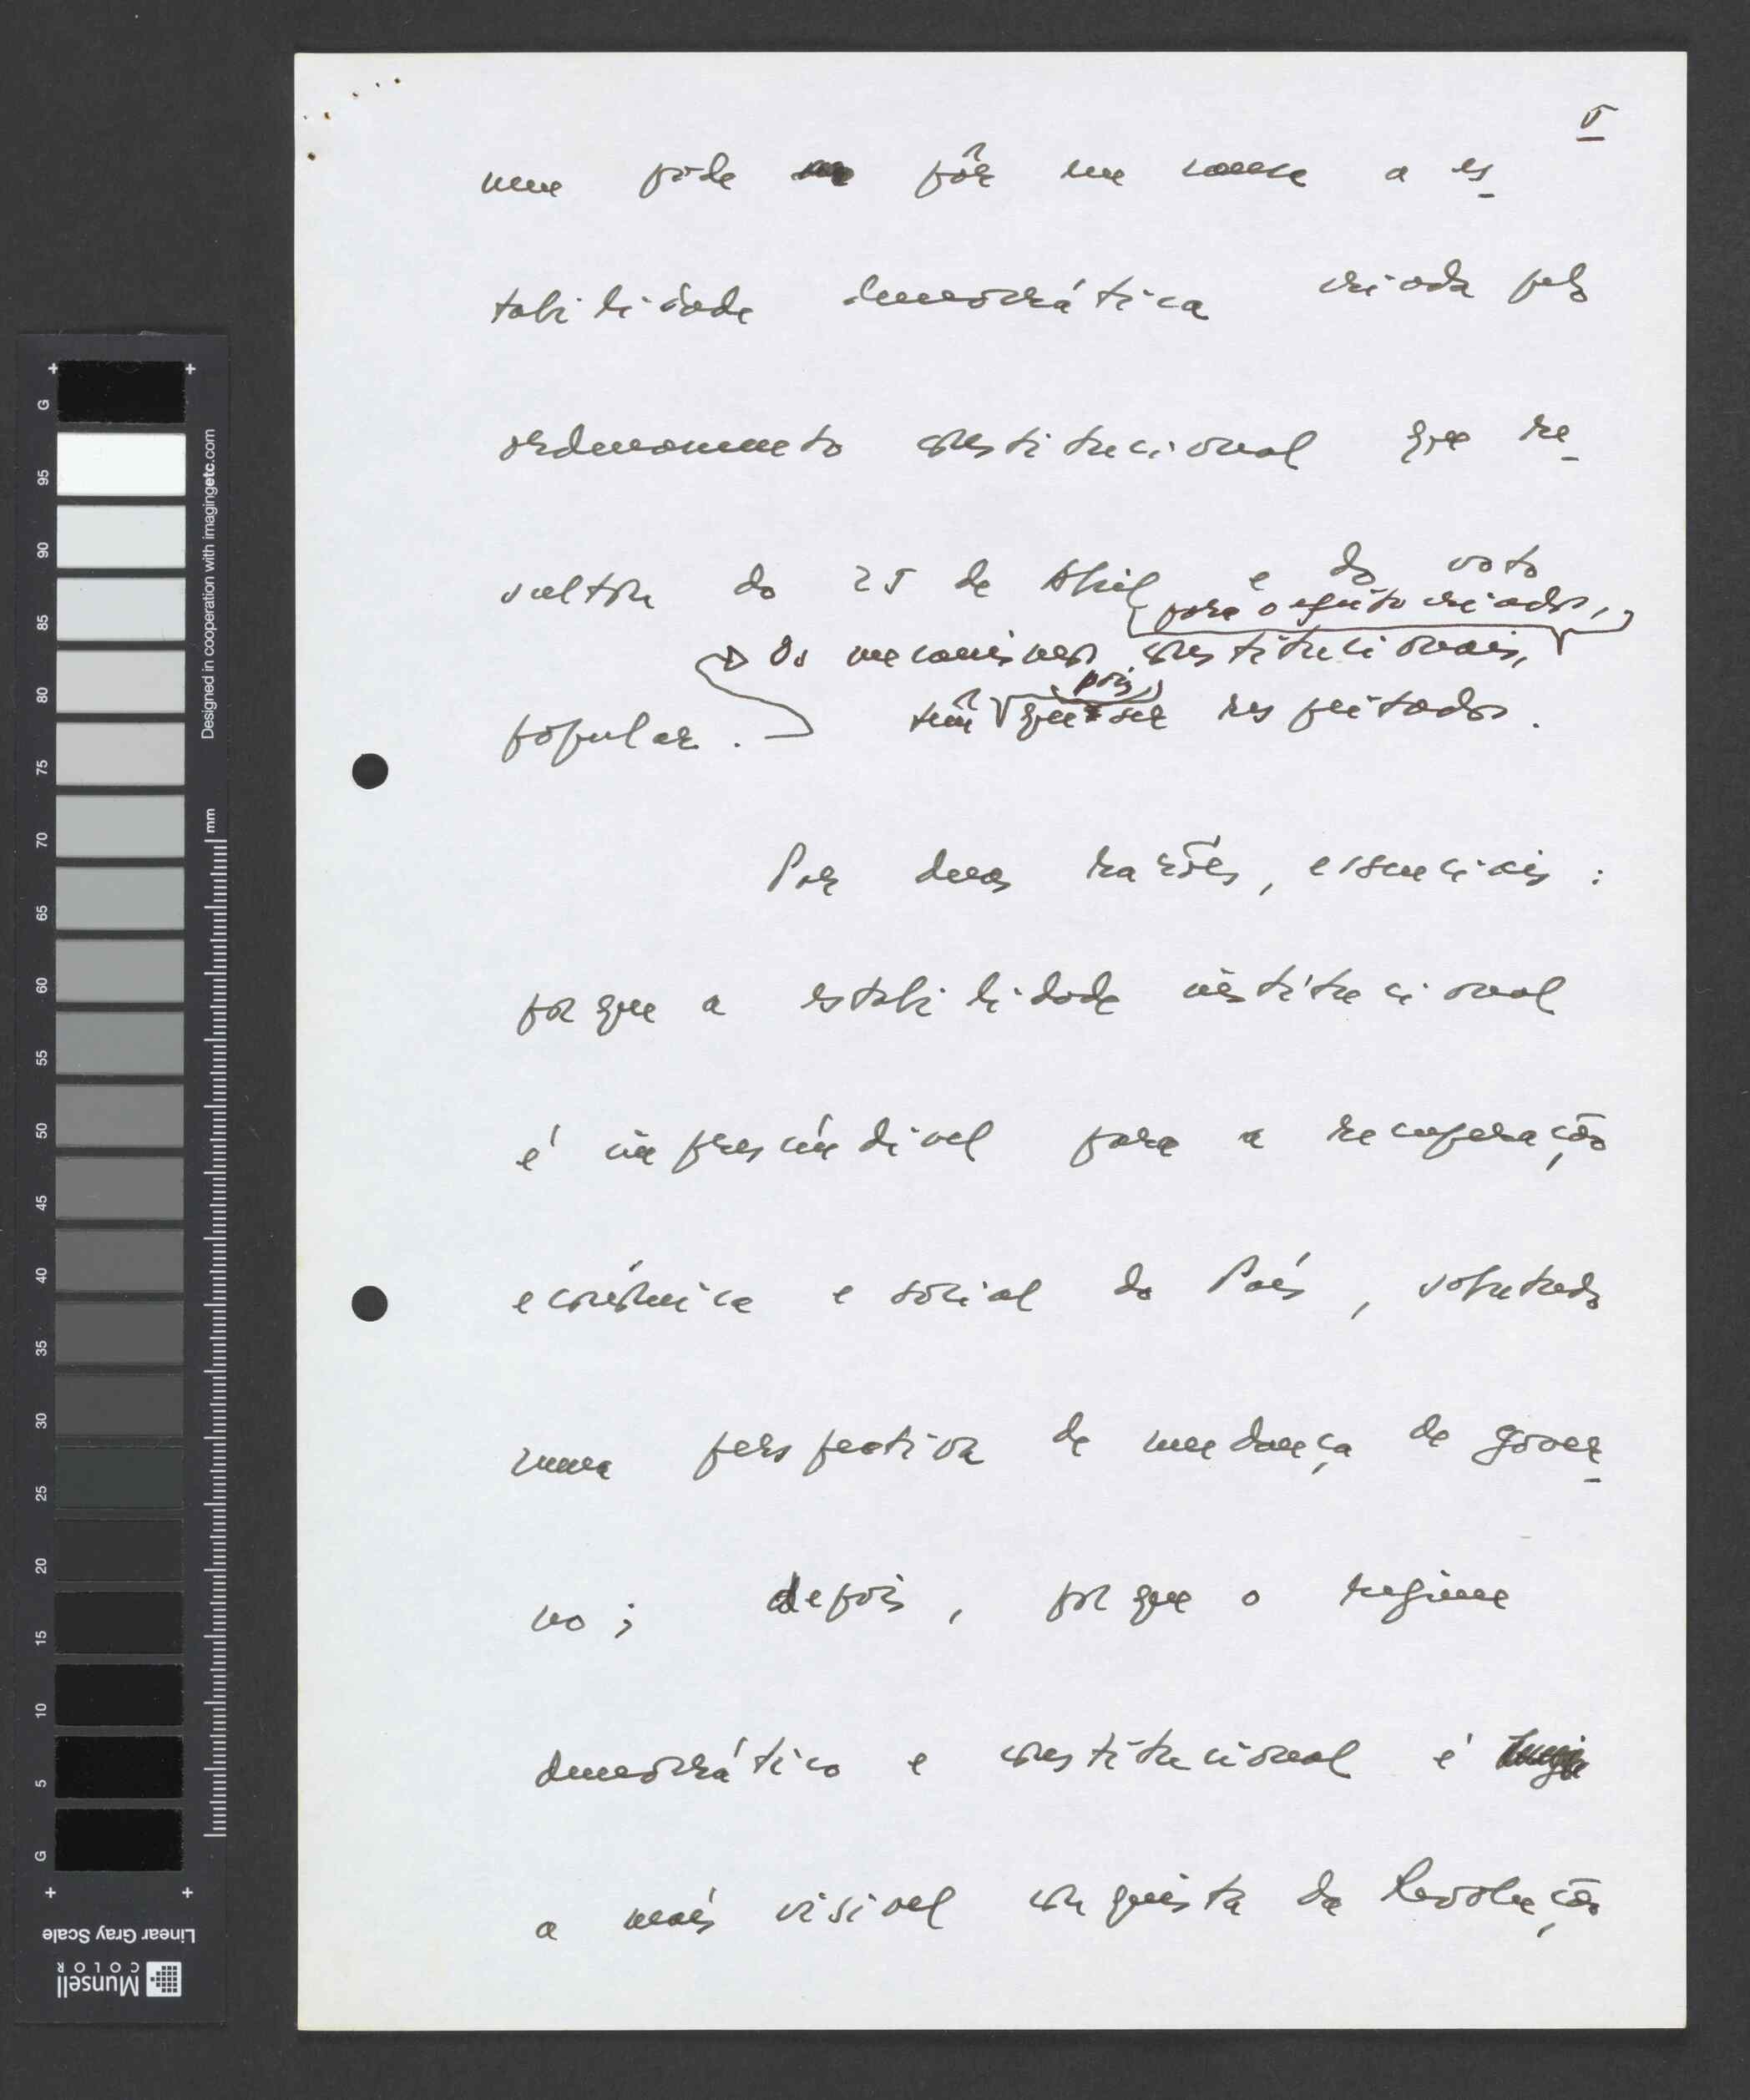 5
nem pode pôr em causa a es-
tabilidade democrática criada pelo
ordenamento constitucional que re-
sultou do 25 de Abril e do voto
para o efeito criados,
Os mecanismos constitucionais,
, pois,
popular. têm que ser respeitados.
Por duas razões, essenciais:
porque a estabilidade institucional
é imprescindível para a recuperação
económica e social do País, sobretudo
numa perspectiva de mudança de gover-
no; depois, porque o regime
democrático e constitucional é
a mais visível conquista da Revolução
G
95
90
85
80
75
70
65
60
55
50
45
40
35
30
25
20
15
10
5
G
mm
Designed in cooperation with imagingetc.com
Linear Gray Scale
Munsell
COLOR